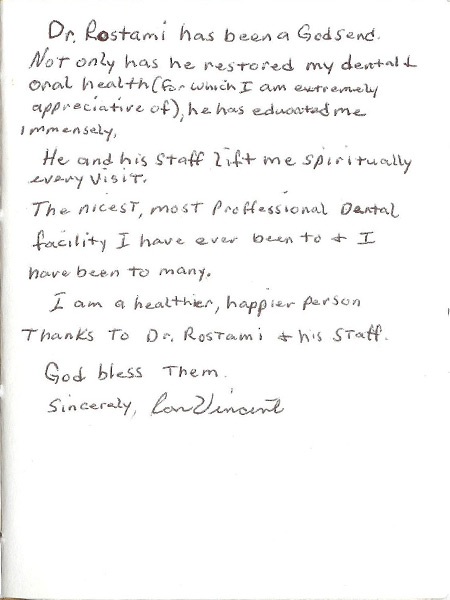 Dr. Rostami has been a Godsend.
Not only has he restored my dental &
oral health (for which I am extremely
appreciative of), he has educated me
immensely,
He and his staff lift me spiritually
every visit.
The nicest, most Proffessional Dental
facility I have ever been to & I
have been to many.
I am a healthier, happier person
Thanks To Dr. Rostami & his Staff.
God bless Them.
Sincerely, Vincent